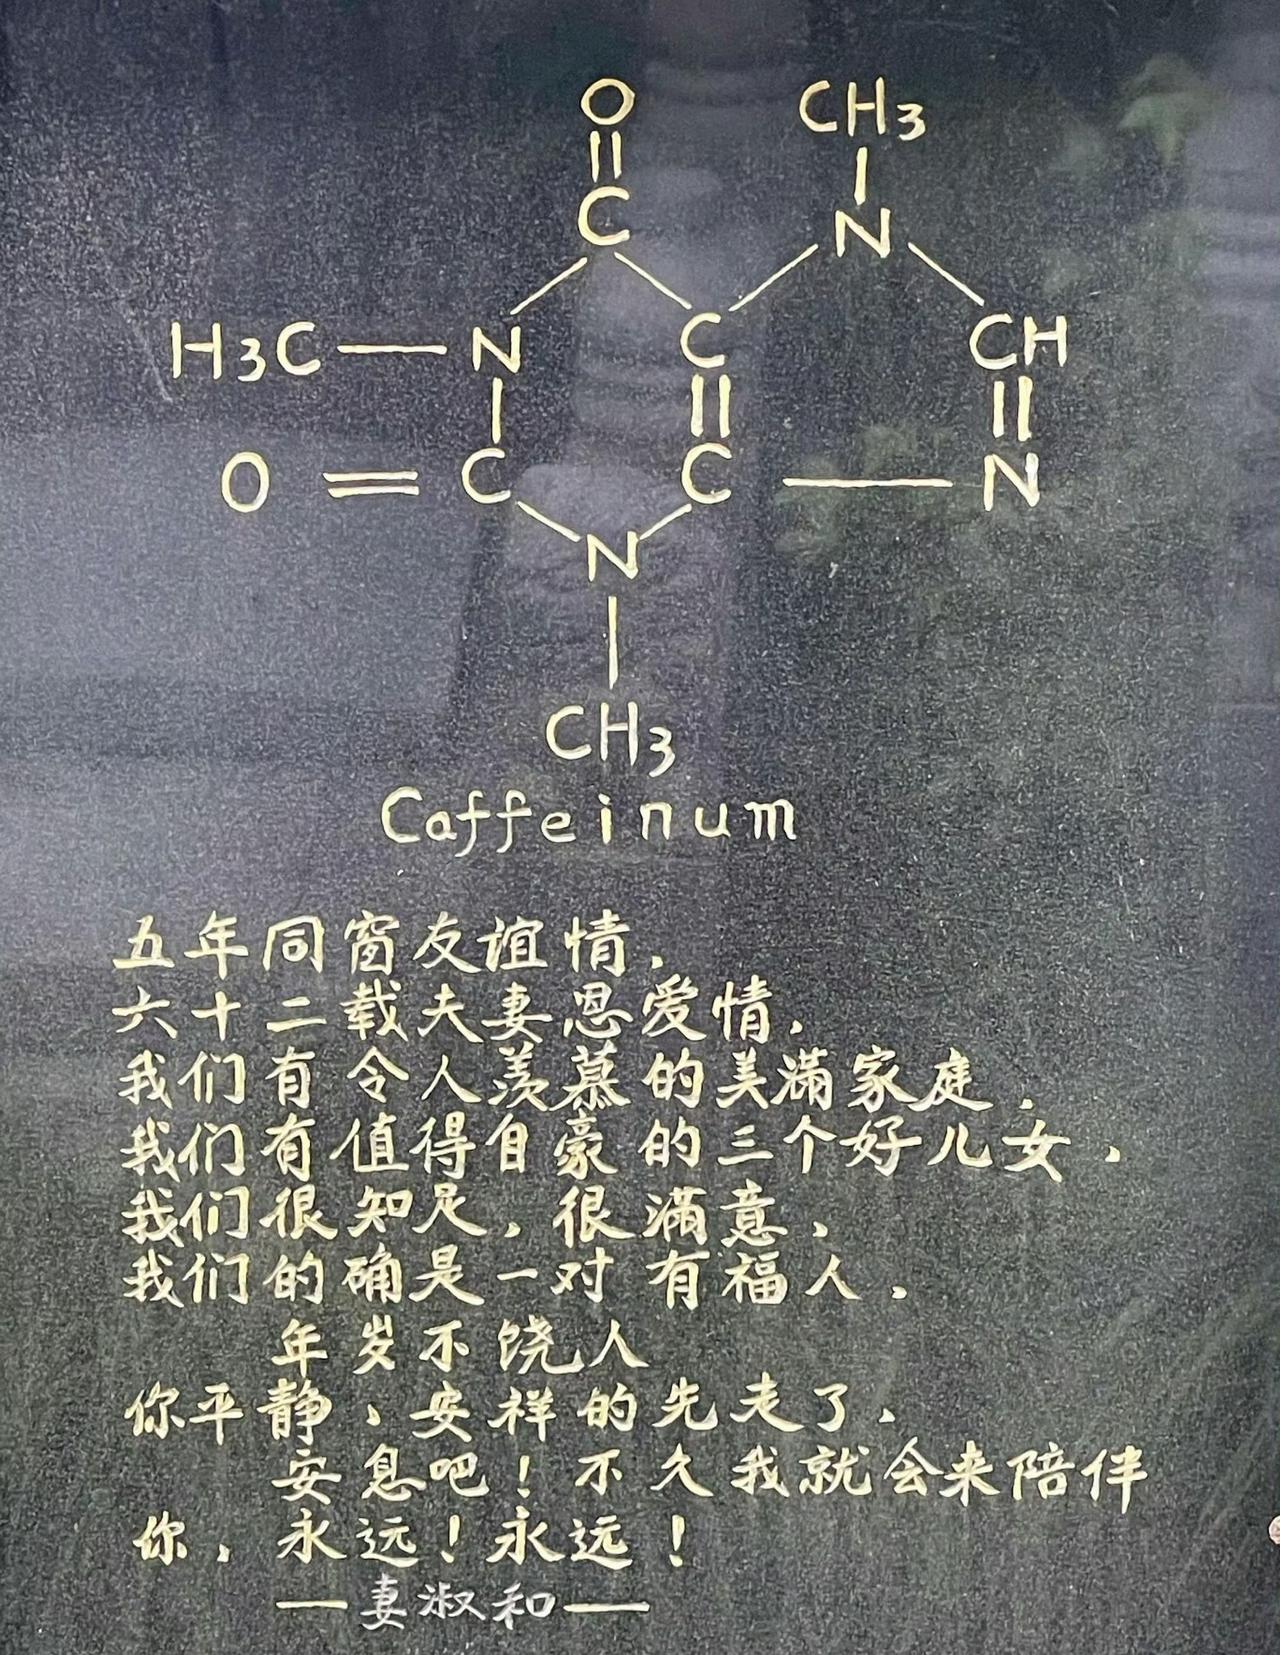 O CH3
C N
H3C N C CH
O C C N
N
CH3
Caffeinum
五年同窗友谊情，
六十二载夫妻恩爱情，
我们有令人羡慕的美满家庭，
我们有值得自豪的三个好儿女，
我们很知足，很满意，
我们的确是一对有福人，
年岁不饶人
你平静、安祥的先走了，
安息吧！不久我就会来陪伴
你，永远！永远！
—妻淑和—